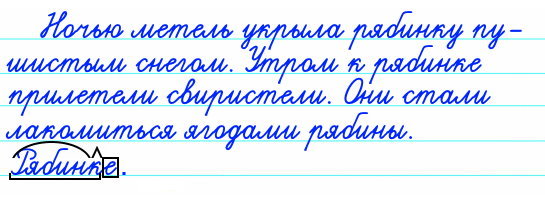 Ночью метель укрыла рябинку пу-
шистым снегом. Утром к рябинке
прилетели свиристели. Они стали
лакомиться ягодами рябины.
Рябинке.